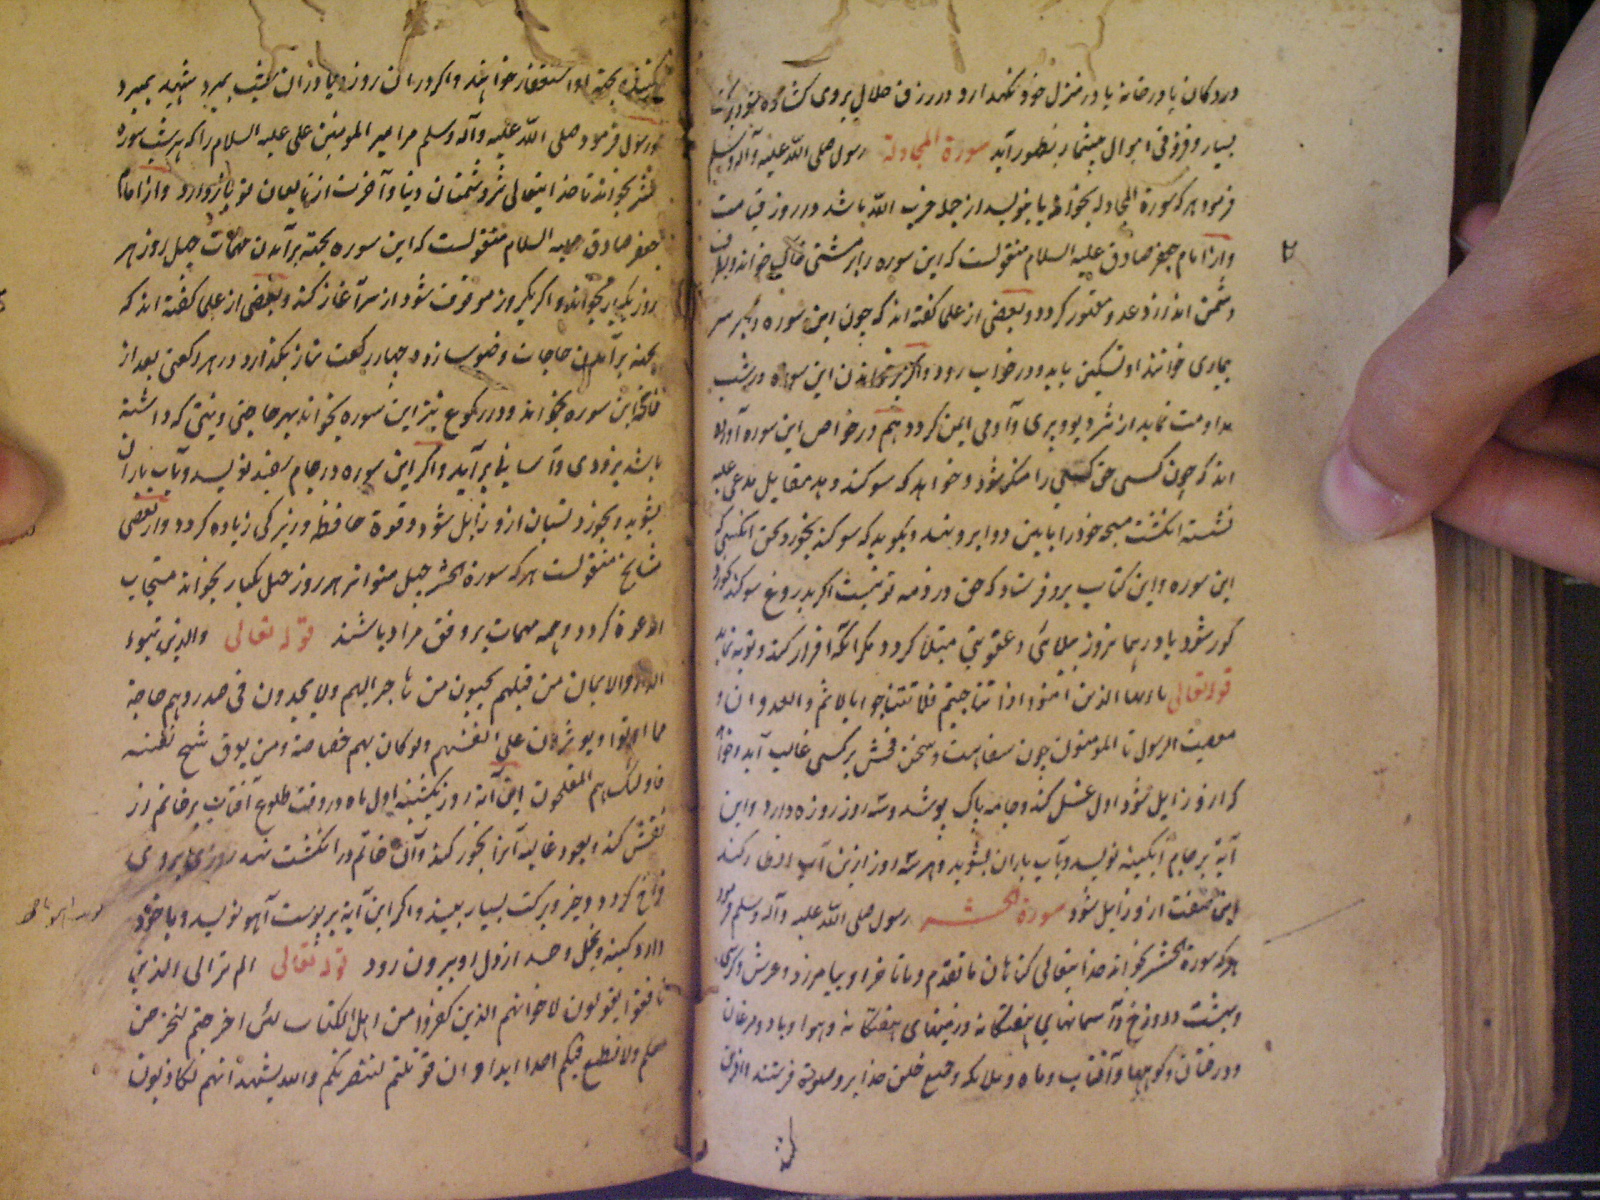 در دکان یا در خانه یا در منزل خود نگهدارد در رزق حلال بروی گشاده شود و برکت
بسیار و فزونی اموال بیشمار بظهور آید سورة المجادلة رسول صلی الله علیه وآله وسلم
فرمود هر که سورة المجادله بخواند یا بنویسد از جمله حزب الله باشد در روز قیامت
و از امام جعفر صادق علیه السلام منقولست که این سوره را بر مشتی خاک خواند و بطرف
دشمن اندازد عدو مقهور گردد و بعضی از علما گفته اند که چون این سوره بر سر
بیماری خوانند او تسکین یابد و در خواب رود و اگر بر خواندن این سوره در شب
مداومت نماید از شر دیو و پری و آدمی ایمن گردد هم در خواص این سوره آورده
اند که چون کسی حق کسی را منکر شود و خواهد که سوگند دهد مقابل مدعی علیه
نشسته انگشت مسبحه خود را مابین دو ابرو نهد و بگوید که سوگند بخورد بحق آنکسی که
این سوره و این کتاب برو فرستاد که حق در ذمه تو نیست اگر بدروغ سوگند خورد
کور شود یا در همان روز ببلائی و عقوبتی مبتلا گردد مگر آنکه اقرار کند و توبه نماید
قوله تعالی یا ایها الذین آمنوا اذا تناجیتم فلا تتناجوا بالاثم والعدوان و
معصیت الرسول تا المومنون چون سفاهت و سخن فحش بر کسی غالب آید و خواهد
که ازو زایل شود اول غسل کند و جامه پاک پوشد و سه روز روزه دارد و این
آیه بر جام آبگینه نویسد و بآب باران بشوید و هر سه روز ازین آب افطار کند
این صفت ازو زایل شود سورة الحشر رسول صلی الله علیه وآله وسلم فرمود
هر که سورة الحشر بخواند خدایتعالی گناهان ما تقدم و ما تاخر او بیامرزد و عرش و کرسی
و بهشت و دوزخ و آسمانهای هفتگانه و زمینهای هفتگانه و هوا و باد و مرغان
و درختان و کوهها و آفتاب و ماه و ملائکه و جمیع خلق خدا برو صلوة فرستند و آفرین
کنند و بجهة او استغفار خواهند و اگر در آن روز یا در آن شب بمیرد شهید بمیرد
و رسول فرمود صلی الله علیه وآله وسلم مر امیر المومنین علی علیه السلام را که هر شب سوره
حشر بخواند تا خدایتعالی شر دشمنان دنیا و آخرت از تو باز دارد و از امام
جعفر صادق علیه السلام منقولست که این سوره بجهة برآمدن مهمات چهل روز هر
روز یکبار بخواند و اگر یکروز موقوف شود از سر آغاز کند و بعضی از علما گفته اند که
بجهة برآمدن حاجات وضو سازد و چهار رکعت نماز بگذارد در هر رکعتی بعد از
فاتحه این سوره بخواند و در رکوع نیز این سوره بخواند بهر حاجتی و نیتی که داشته
باشد بزودی و آسانی برآید و اگر این سوره در جام سفید نویسد و بآب باران
بشوید و بخورد نسیان ازو زایل شود و قوة حافظه و زیرکی زیاده گردد و از بعضی
مشایخ منقولست هر که سورة الحشر چهل متواتر هر روز چهل یکبار بخواند مستجاب
الدعوة گردد و همه مهمات بر وفق مراد باشند قوله تعالی والذین تبوء
الدار والایمان من قبلهم یحبون من هاجر الیهم ولا یجدون فی صدورهم حاجة
مما اوتوا ویوثرون علی انفسهم ولو کان بهم خصاصة ومن یوق شح نفسه
فاولئک هم المفلحون این آیه روز یکشنبه اول ماه در وقت طلوع آفتاب بر خاتم زر
نقش کند و بعود و غالیه آنرا بخور کند و آن خاتم در انگشت نهد روزی بروی
فراخ گردد و خیر و برکت بسیار بیند و اگر این آیه بر پوست آهو نویسد و با خود
دارد کینه و بخل و حسد از دل او بیرون رود قوله تعالی الم تر الی الذین
نافقوا یقولون لاخوانهم الذین کفروا من اهل الکتاب لئن اخرجتم لنخرجن
معکم ولا نطیع فیکم احدا ابدا وان قوتلتم لننصرنکم والله یشهد انهم لکاذبون